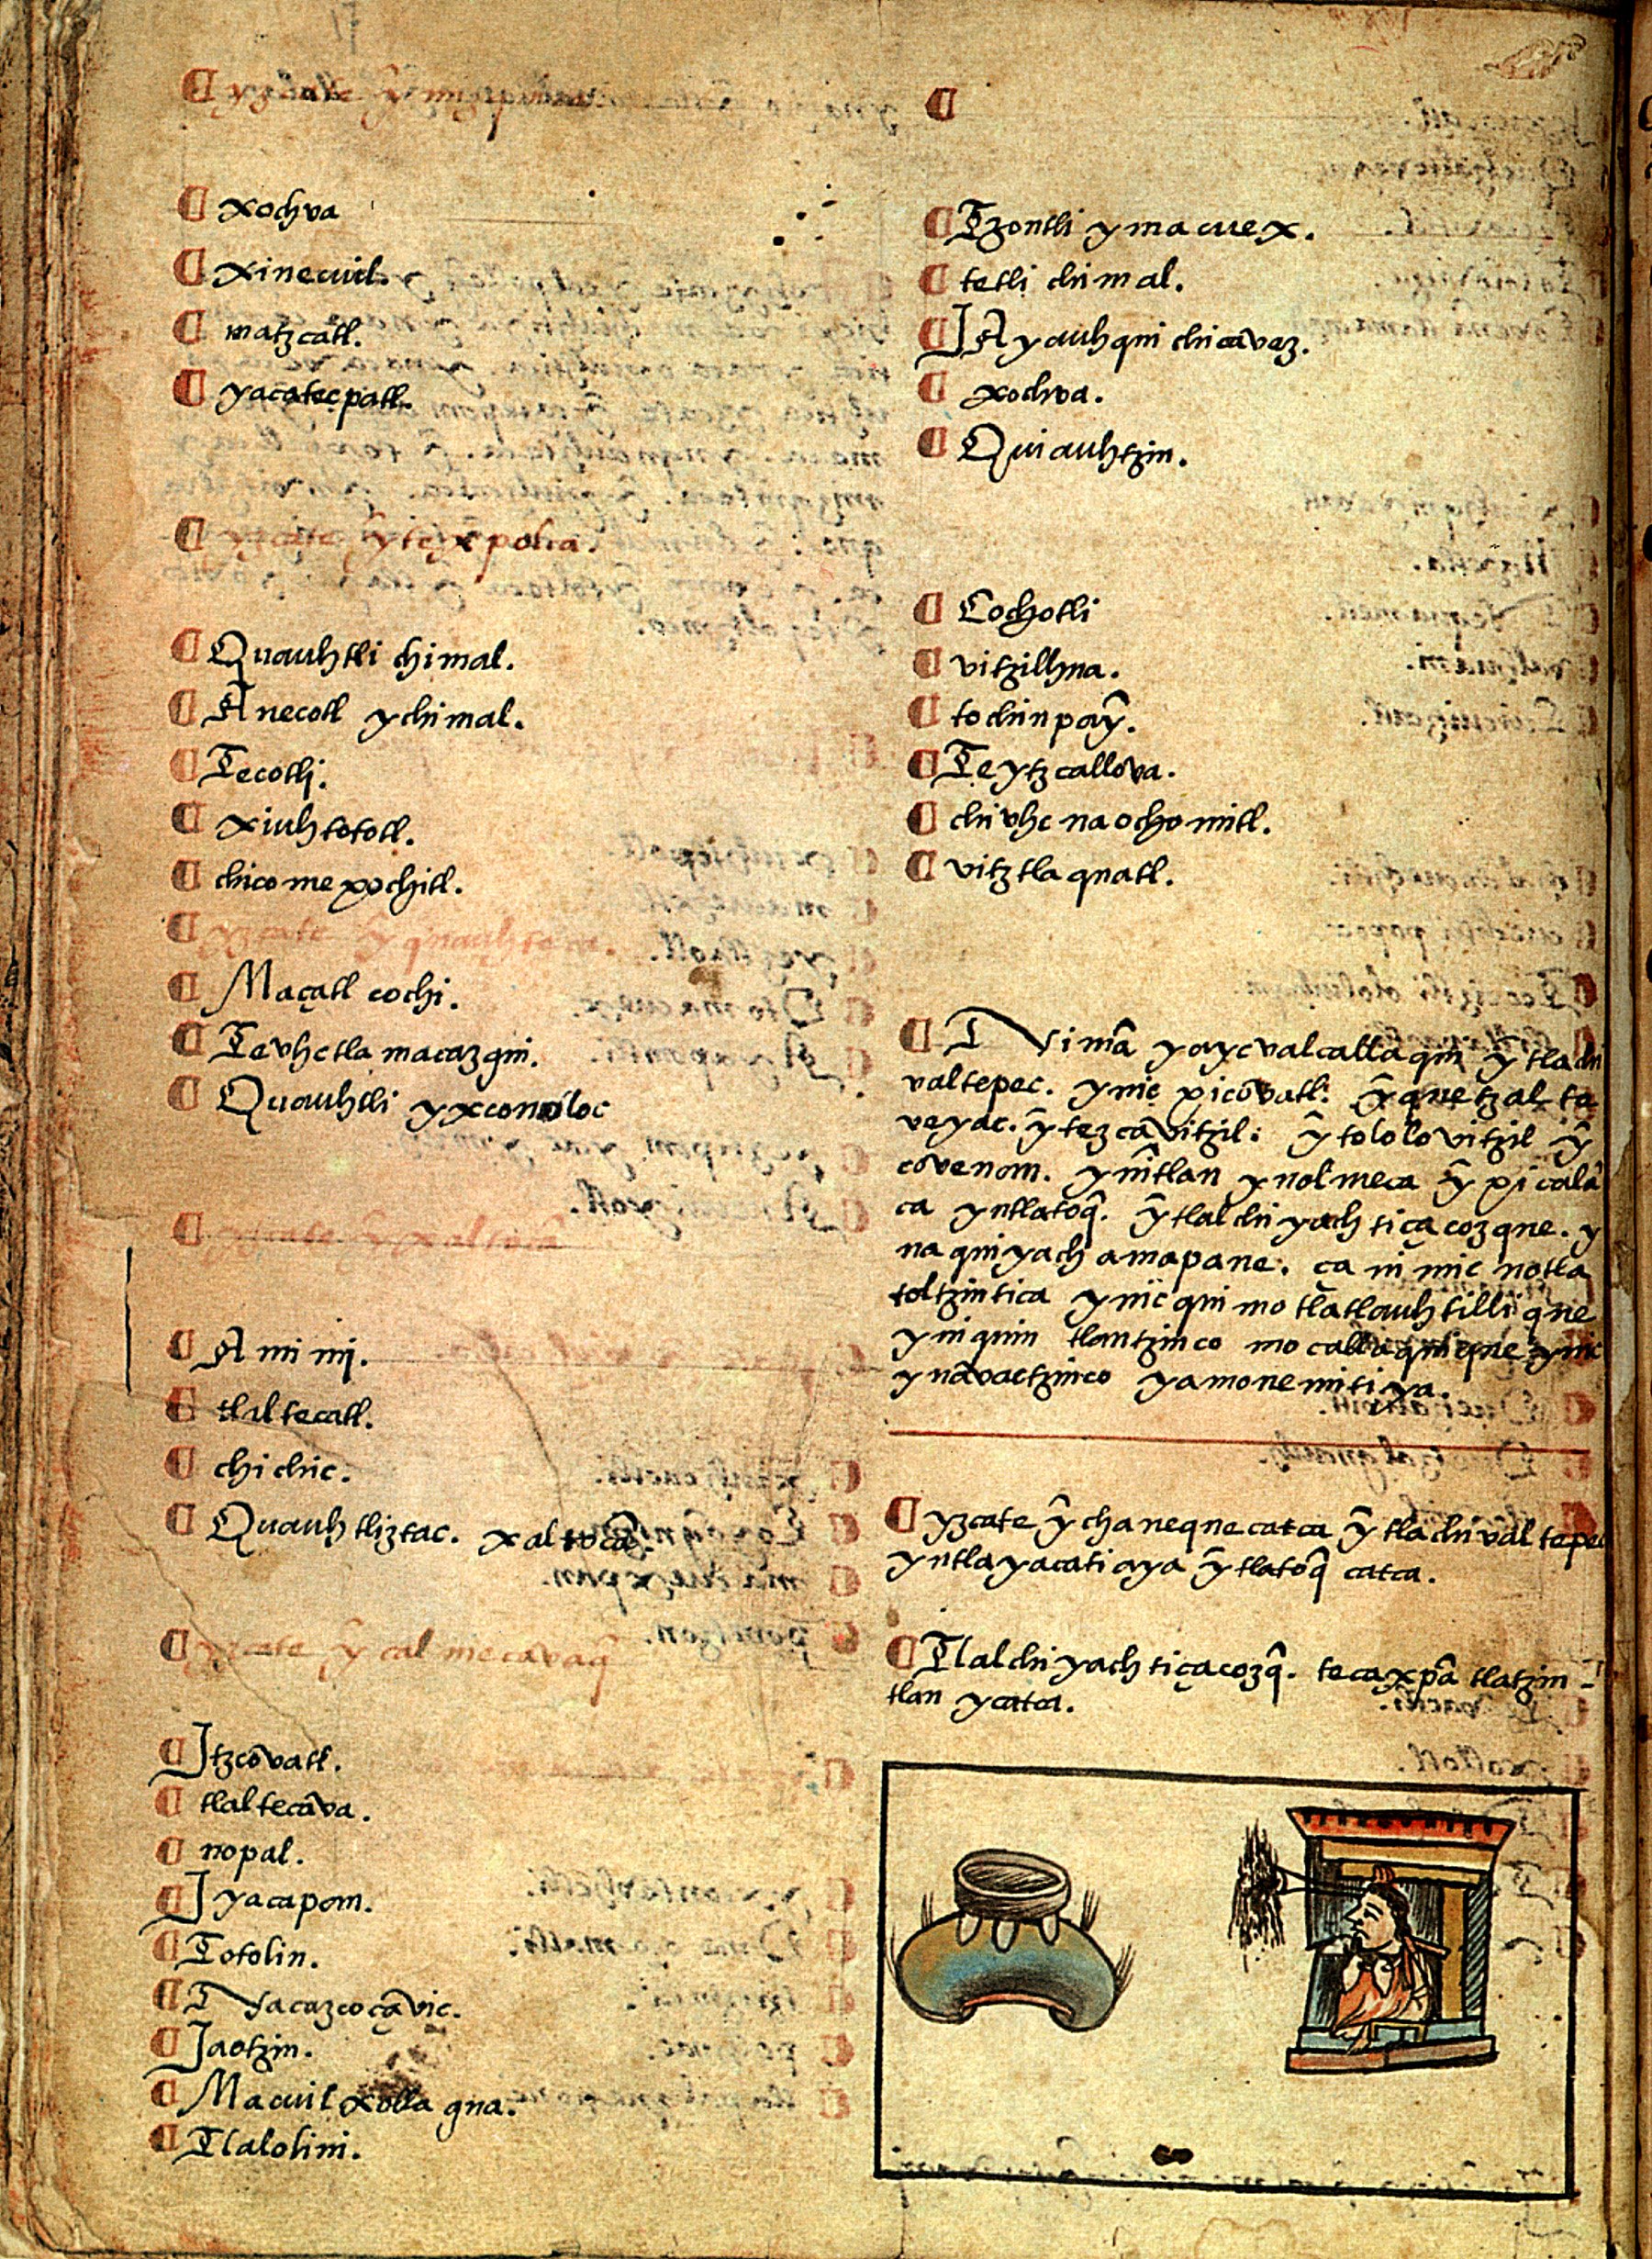 ¶ yzcate ŷ mizquipolca
¶ xochva
¶ xinecuil.
¶ matzcatl.
¶ yacatecpatl.
¶ yzcate ŷ texpolca.
¶ Quauhtli chimal.
¶ Anecotl ychimal.
¶ Tecotli.
¶ xiuhtototl.
¶ chicomexochitl.
¶ yzcate ŷ quauhteca.
¶ Maçatl cochi.
¶ Tevhctlamacazqui.
¶ Quauhtli yxconoloc
¶ yzcate ŷ xaltocâ
¶ Amimj.
¶ tliltecatl.
¶ chichic.
¶ Quauhtliztac. xaltocâ.
¶ yzcate ŷ calmecavaq̂
¶ Jtzcôvatl.
¶ tlaltecâva.
¶ nopal.
¶ Jyacapom.
¶ Totolin.
¶ Nacazcoçâvic.
¶ Jaotzin.
¶ Macuilxollaqua.
¶ Tlalolini.
¶
¶ Tzontli ymacuex.
¶ tetli chimal.
¶ JAyauhqui chicâvaz.
¶ xochva.
¶ Quiauhtzin.
¶ Cochotli
¶ vitzilhua.
¶ tochinpaŷ.
¶ Teytzcallova.
¶ chivhcnaochomitl.
¶ vitztlaquatl.
¶ Nimâ yayc valcallaquî ŷ tlachi
valtepec. ynic xicôvatl: ŷ quetzalte
veyac. ŷ tezcâvitzil: ŷ tololovitzil ŷ
côvenom. ymîtlan ynolmeca ŷ xicalâ
ca yntlatoq̂. ŷ tlalchiyach tiçacozque. y
naquiyach amapane. ça ni mic notla
toltzintica ynic quimotlatlauhtillique
yniquin tlantzinco mocallaquique ynic
ynâvactzinco yamonemitiya.
¶ yzcate ŷ chanequecatca ŷ tlachivaltepec
yntlayacatiaya ŷ tlatoq̂ catca.
¶ Tlalchiyach tiçacozq̂. tecaxpâ tlatzin-
tlan ycatca.